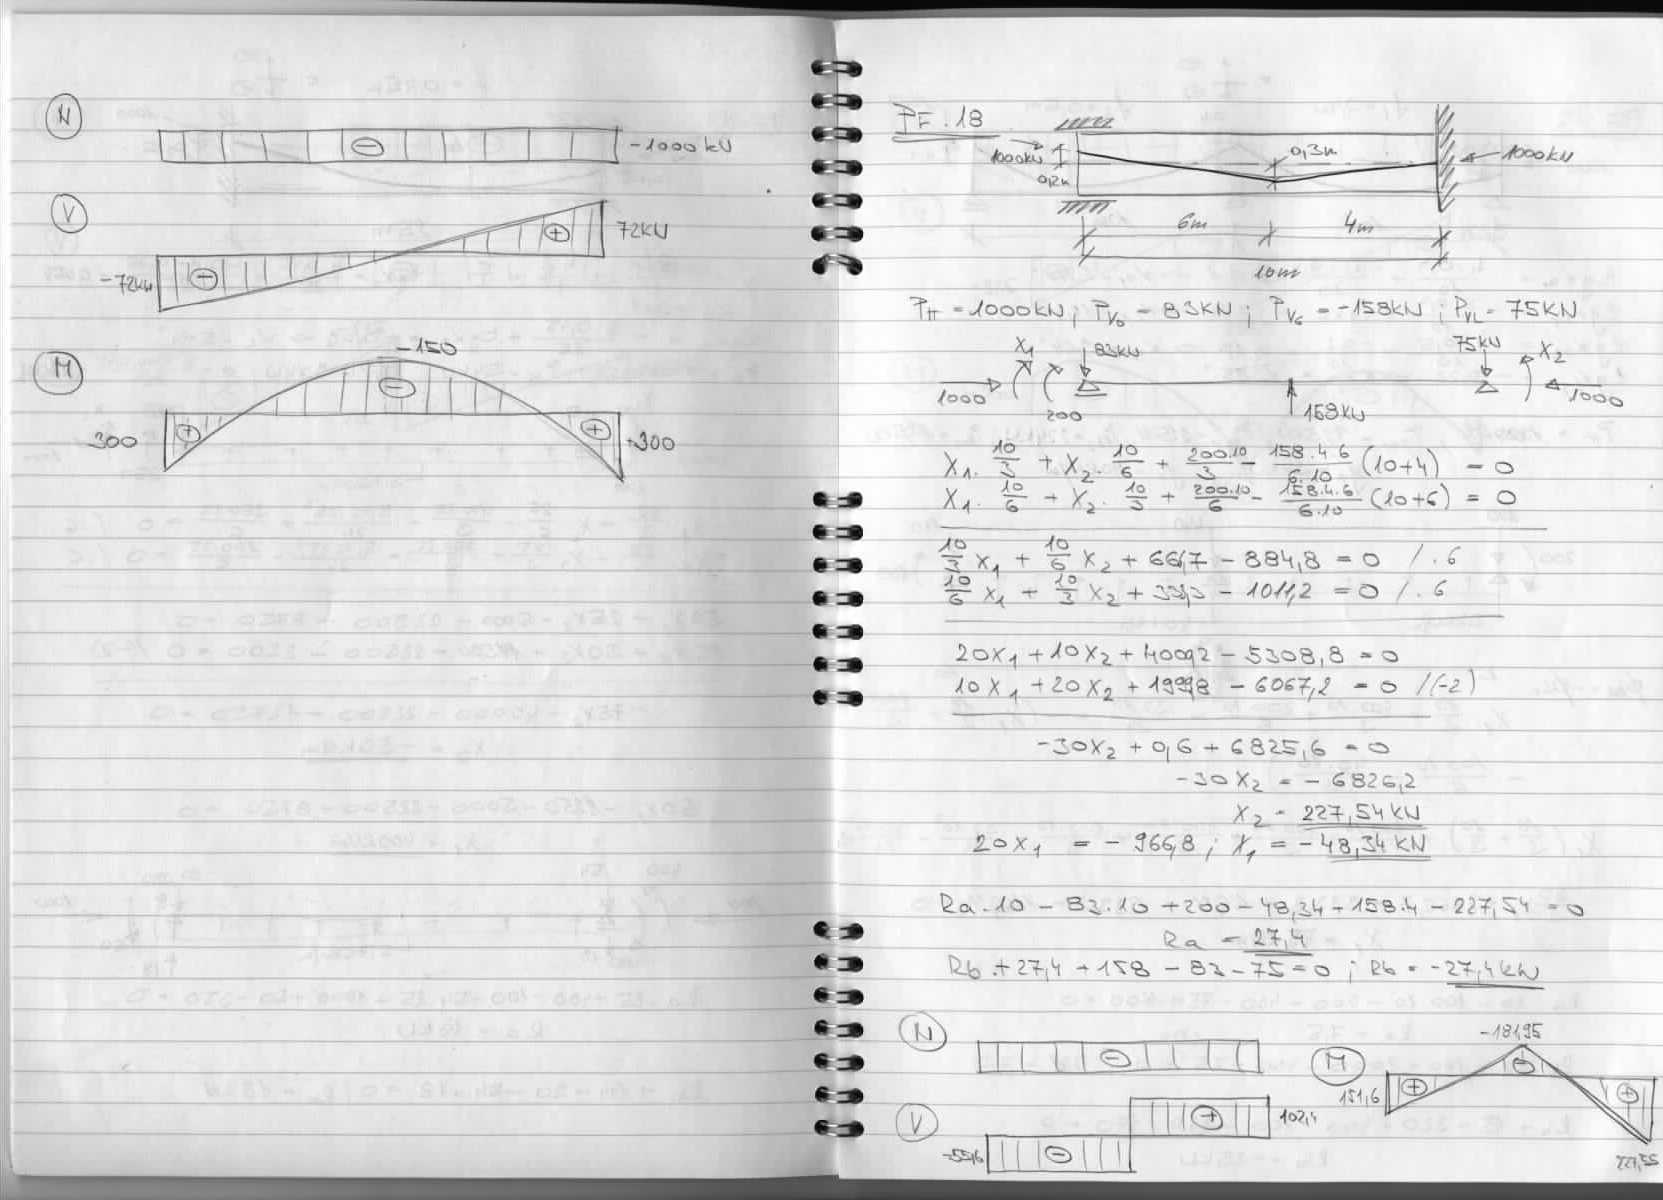 N
-1000 kN
V
72kN
-72kN
M
-150
300
+300
PF. 18
1000kN
0,3m
0,2m
1000kN
6m
4m
10m
PH = 1000kN ; PV0 = 83KN ; PV6 = -158KN ; PVL = 75KN
X1
83kN
75kN
X2
1000
200
158kN
1000
X1. 10/3 + X2. 10/6 + 200.10/3 - 158.4.6/6.10 (10+4) = 0
X1. 10/6 + X2. 10/3 + 200.10/6 - 158.4.6/6.10 (10+6) = 0
10/3 X1 + 10/6 X2 + 666,7 - 884,8 = 0 /.6
10/6 X1 + 10/3 X2 + 333,3 - 1011,2 = 0 /.6
20X1 + 10X2 + 4000,2 - 5308,8 = 0
10X1 + 20X2 + 1999,8 - 6067,2 = 0 /(-2)
-30X2 + 0,6 + 6825,6 = 0
-30X2 = - 6826,2
X2 = 227,54 KN
20X1 = - 966,8 ; X1 = - 48,34 KN
Ra.10 - 83.10 + 200 - 48,34 + 158.4 - 227,54 = 0
Ra = 27,4
Rb + 27,4 + 158 - 83 - 75 = 0 ; Rb = -27,4kN
N
M
-181,95
151,6
227,55
V
102,4
-55,6